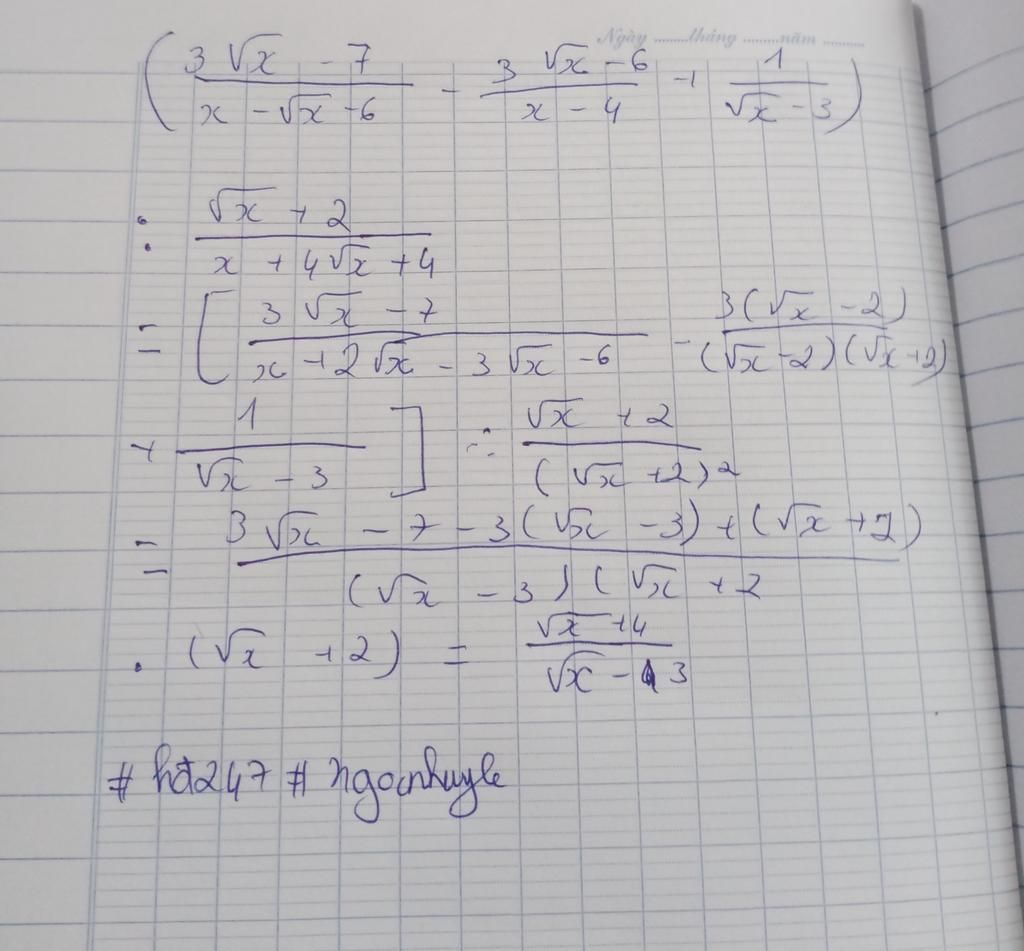 Ngày ........tháng ........năm .........
( (3√x - 7)/(x - √x - 6) - (3√x - 6)/(x - 4) + 1/(√x - 3) )
: (√x + 2)/(x + 4√x + 4)
= [ (3√x - 7)/(x + 2√x - 3√x - 6) - 3(√x - 2)/((√x - 2)(√x + 2))
+ 1/(√x - 3) ] : (√x + 2)/(√x + 2)²
= (3√x - 7 - 3(√x - 3) + (√x + 2))/((√x - 3)(√x + 2
. (√x + 2) = (√x + 4)/(√x - 3)
# hđ247 # ngocnhuyle